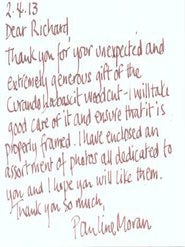 2.4.13
Dear Richard,
Thank you for your unexpected and
extremely generous gift of the
woodcut - I will take
good care of it and ensure that it is
properly framed. I have enclosed an
assortment of photos all dedicated to
you and I hope you will like them.
Thank you so much,
Pauline Moran